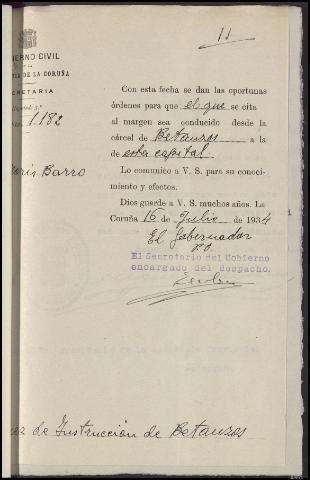 11
ERNO CIVIL
DE LA CORUÑA
RETARIA
1.182
Con esta fecha se dan las oportunas
órdenes para que el que se cita
al margen sea conducido desde la
cárcel de Betanzos a la
de esta capital.
Barro
Lo comunico a V. S. para su conoci-
miento y efectos.
Dios guarde a V. S. muchos años. La
Coruña 16 de Julio de 1934
El Gobernador
P.O.
El Secretario del Gobierno
encargado del despacho.
ez de Instrucción de Betanzos